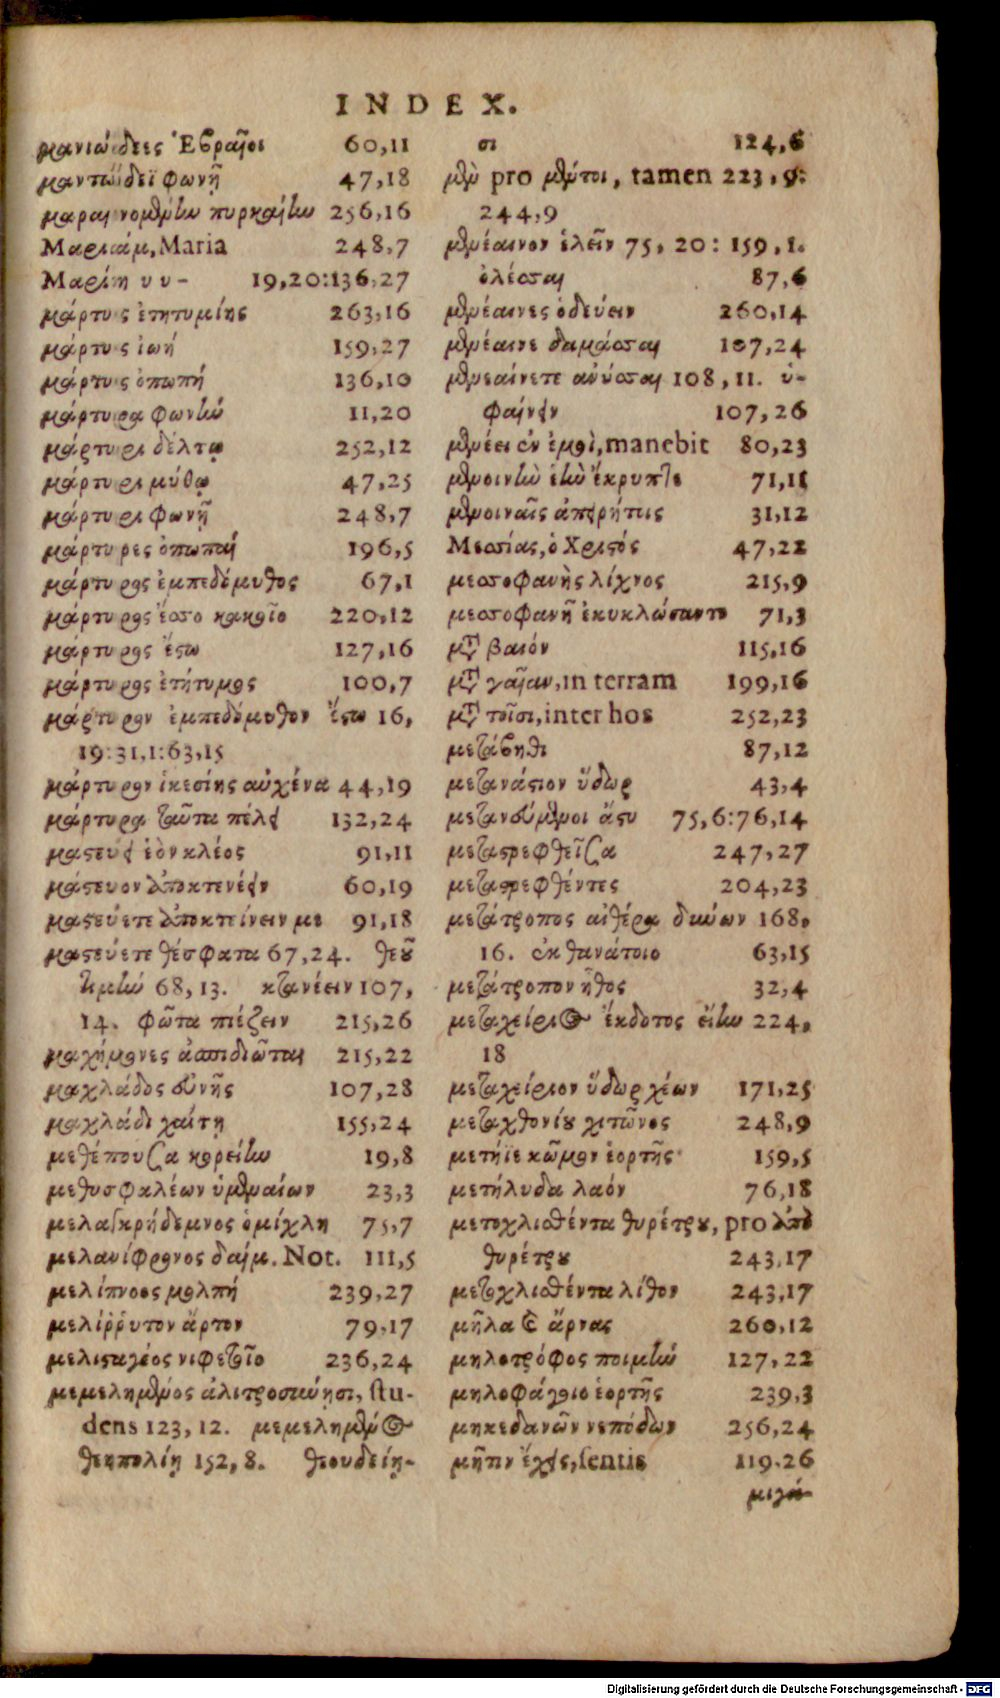 INDEX.
μανιώδεες Ἑβραῖοι 60,11
μαντώδεϊ φωνῇ 47,18
μαραινομένην πυρκαϊὴν 256,16
Μαριάμ, Maria 248,7
Μαρίη υυ- 19,20:136,27
μάρτυς ἐτητυμίης 263,16
μάρτυς ἰωή 159,27
μάρτυς ὀπωπή 136,10
μάρτυρα φωνήν 11,20
μάρτυρι δέλτῳ 252,12
μάρτυρι μύθῳ 47,25
μάρτυρι φωνῇ 248,7
μάρτυρες ὀπωπαί 196,5
μάρτυρος ἐμπεδόμυθος 67,1
μάρτυρος ἔσσο κακοῖο 220,12
μάρτυρος ἔστω 127,16
μάρτυρος ἐτήτυμος 100,7
μάρτυρον ἐμπεδόμυθον ἔστω 16,
19:31,1:63,15
μάρτυρον ἱκεσίης αὐχένα 44,19
μάρτυρα ταῦτα πέλει 132,24
μαστεύει ἑὸν κλέος 91,11
μάστευον ἀποκτενέειν 60,19
μαστεύετε ἀποκτείνειν με 91,18
μαστεύετε θέσφατα 67,24. θεοῦ
τιμὴν 68,13. κτανέειν 107,
14. φῶτα πιέζειν 215,26
μαχήμονες ἀσπιδιῶται 215,22
μαχλάδος εὐνῆς 107,28
μαχλάδι χαίτῃ 155,24
μεθέπουσα κορείην 19,8
μεθυσφαλέων ὑμεναίων 23,3
μελαγκρήδεμνος ὁμίχλη 75,7
μελανίφρονος δαίμ. Not. 111,5
μελίπνοος μολπή 239,27
μελίῤῥυτον ἄρτον 79,17
μελισταγέος νιφετοῖο 236,24
μεμελημένος ἀλιτροσύνῃσι, stu-
dens 123,12. μεμελημένος
θεηπολίῃ 152,8. θεουδείῃ-
σι 124,6
μὲν pro μέντοι, tamen 223,9:
244,9
μενέαινον ἑλεῖν 75,20:159,1.
ὀλέσσαι 87,6
μενέαινες ὁδεύειν 260,14
μενέαινε δαμάσσαι 107,24
μενεαίνετε ἀνύσσαι 108,11. ὑ-
φαίνειν 107,26
μενέει ἐν ἐμοὶ, manebit 80,23
μενοινὴν ἑὴν ἔκρυπτε 71,11
μενοιναῖς ἀπειρήτοις 31,12
Μεσσίας, ὁ Χριστός 47,22
μεσσοφανὴς λίχνος 215,9
μεσσοφανῆ ἐκυκλώσαντο 71,3
μετὰ βαιόν 115,16
μετὰ γαῖαν, in terram 199,16
μετὰ τοῖσι, inter hos 252,23
μετάβηθι 87,12
μετανάστιον ὕδωρ 43,4
μετανεύμενοι ἄστυ 75,6:76,14
μεταστρεφθεῖσα 247,27
μεταστρεφθέντες 204,23
μετάτροπος αἰθέρα δινεύων 168,
16. ἐκ θανάτοιο 63,15
μετάτροπον ἦθος 32,4
μεταχείριος ἔκδοτος εἴην 224,
18
μεταχείριον ὕδωρ χέων 171,25
μεταχθονίου χιτῶνος 248,9
μετήϊε κῶμον ἑορτῆς 159,5
μετήλυδα λαόν 76,18
μετοχλισθέντα θυρέτρου, pro ἀπὸ
θυρέτρου 243,17
μετοχλισθέντα λίθον 243,17
μῆλα καὶ ἄρνας 260,12
μηλοτρόφος ποιμήν 127,22
μηλοφάγοιο ἑορτῆς 239,3
μηκεδανῶν νεπόδων 256,24
μῆτιν ἔχεις, sentis 119.26
μιγά-
Digitalisierung gefördert durch die Deutsche Forschungsgemeinschaft - DFG